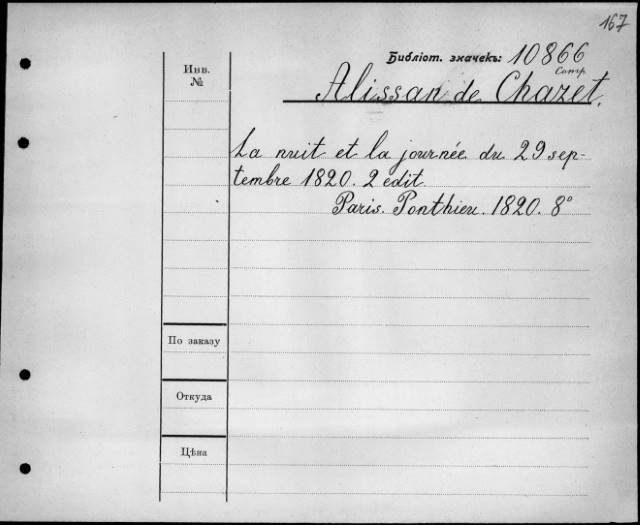 167
Библіот. значекъ: 10866
Comp
Инв.
№
Alissan de Chazet.
La nuit et la journée du 29 sep-
tembre 1820. 2 edit.
Paris. Ponthieu. 1820. 8°
По заказу
Откуда
Цѣна